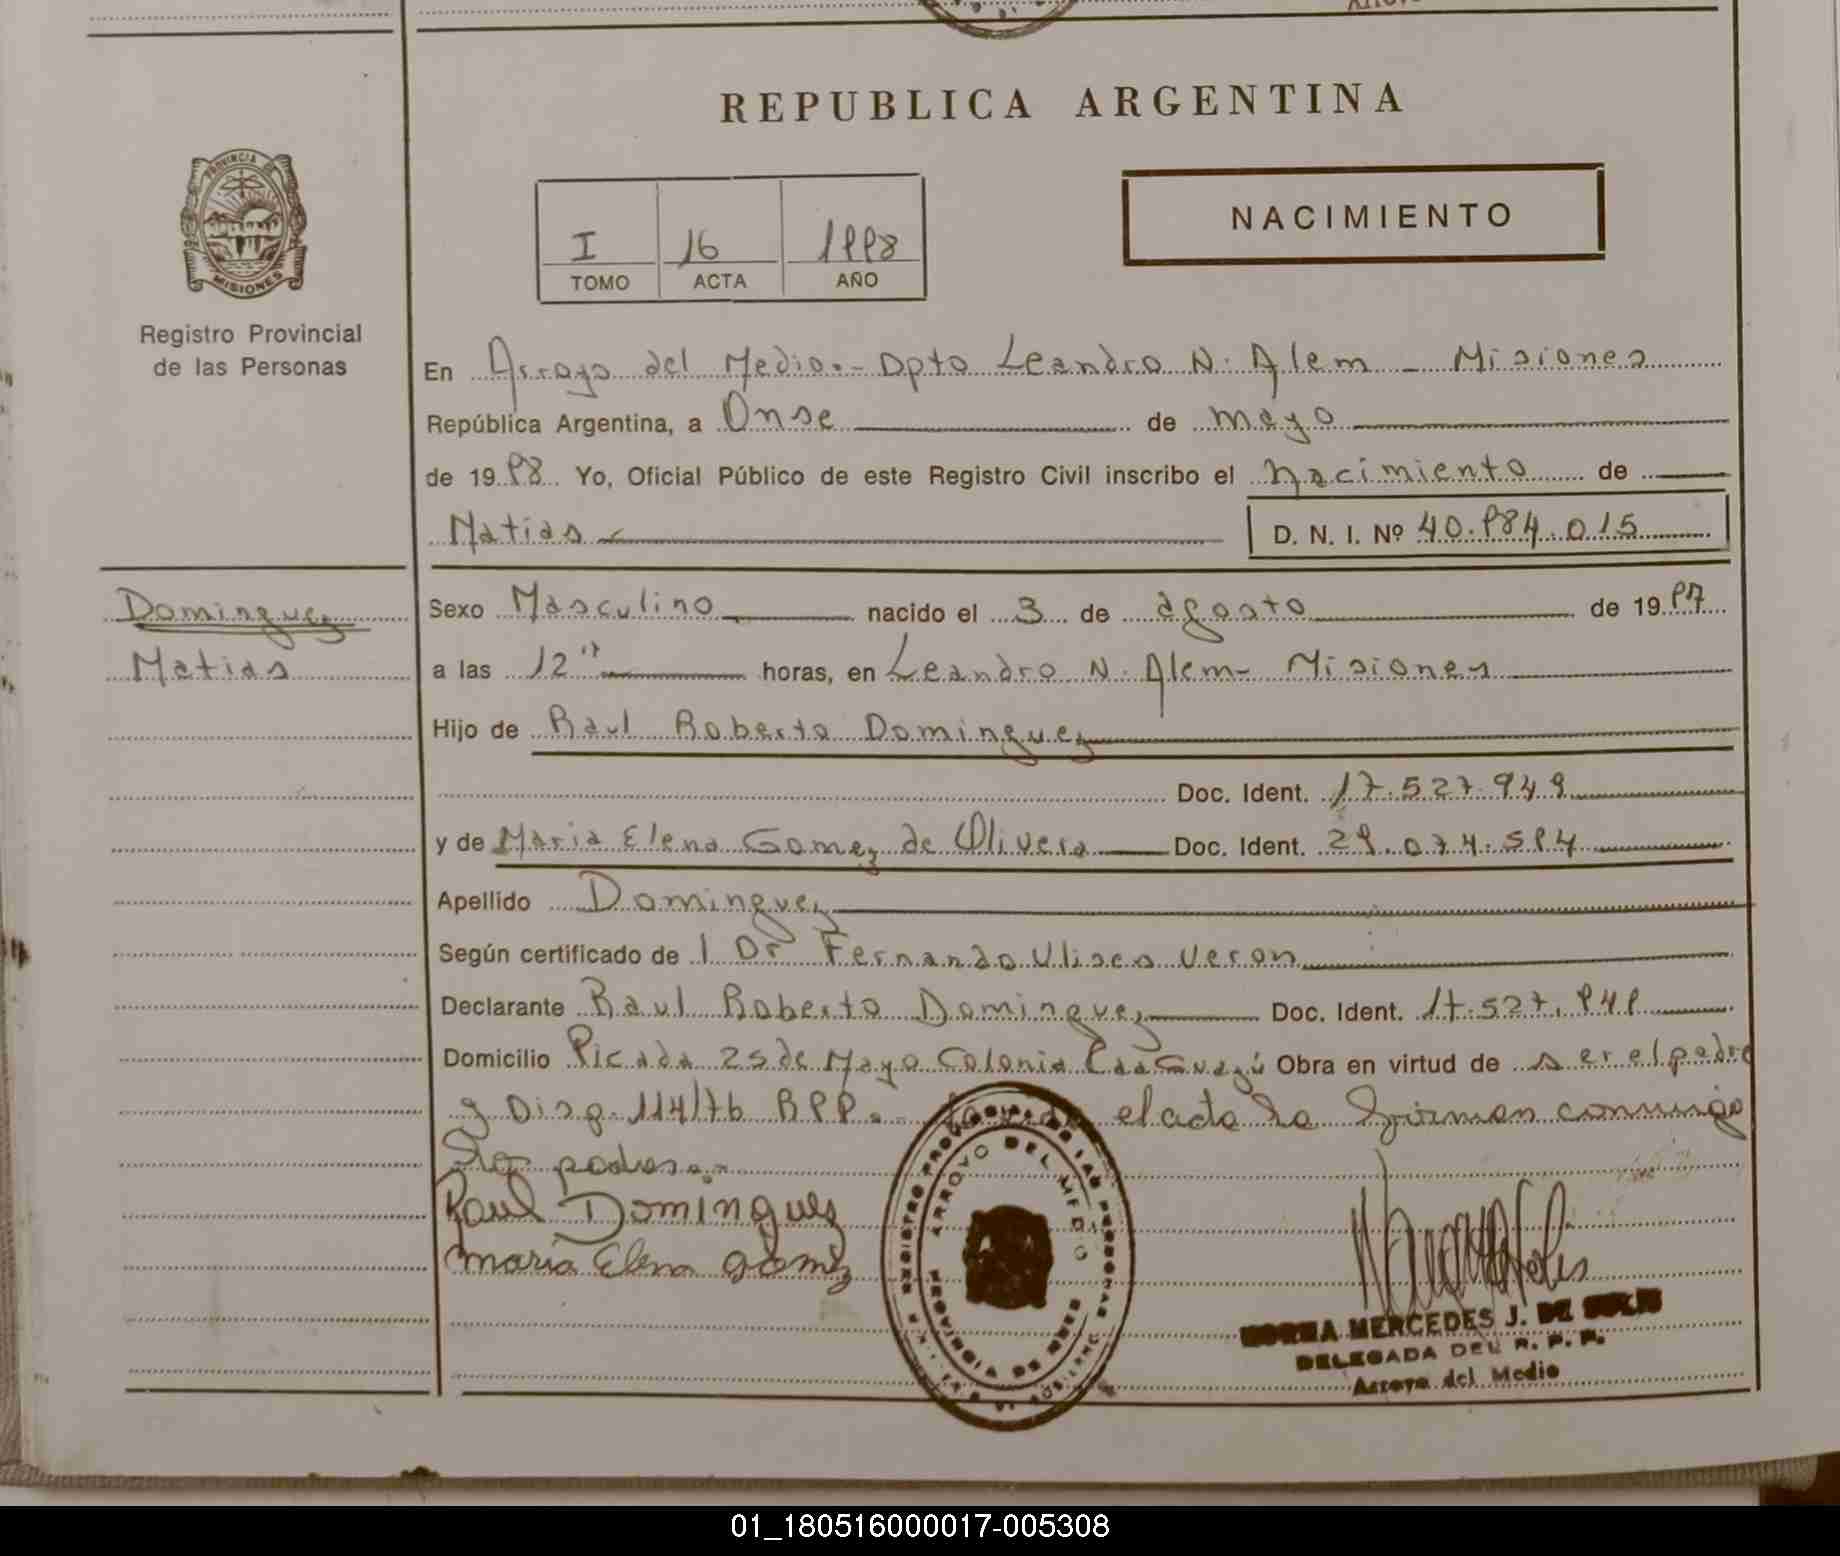 REPUBLICA ARGENTINA
PROVINCIA DE
MISIONES
Registro Provincial
de las Personas
I 16 1998
TOMO ACTA AÑO
NACIMIENTO
En Arroyo del Medio.- Dpto Leandro N. Alem - Misiones
República Argentina, a Onse de mayo
de 1998 Yo, Oficial Público de este Registro Civil inscribo el nacimiento de
Matias D. N. I. Nº 40.984.015
Dominguez
Matias
Sexo Masculino nacido el 3 de agosto de 1997
a las 12 horas, en Leandro N. Alem- Misiones
Hijo de Raul Roberto Dominguez
Doc. Ident. 17.527.949
y de Maria Elena Gomez de Olivera Doc. Ident. 29.074.594
Apellido Dominguez
Según certificado de l Dr Fernando Ulises Veron
Declarante Raul Roberto Dominguez Doc. Ident. 17.527.949
Domicilio Picada 25 de Mayo Colonia Caaguazú Obra en virtud de ser el padre
y Disp. 114/76 RPP.- el acta la firman conmigo
los padres.-
Raul Dominguez
maria Elena Gomez
REGISTRO PROVINCIAL DE LAS PERSONAS
ARROYO DEL MEDIO
MERCEDES J. DE
DELEGADA DEL R. P. P.
Arroyo del Medio
01_180516000017-005308